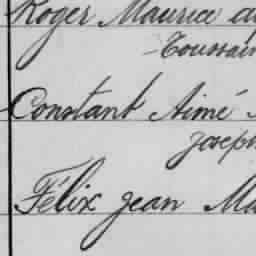 Roger Maurice
Toussain
Constant Aimé
Joseph
Félix Jean Ma